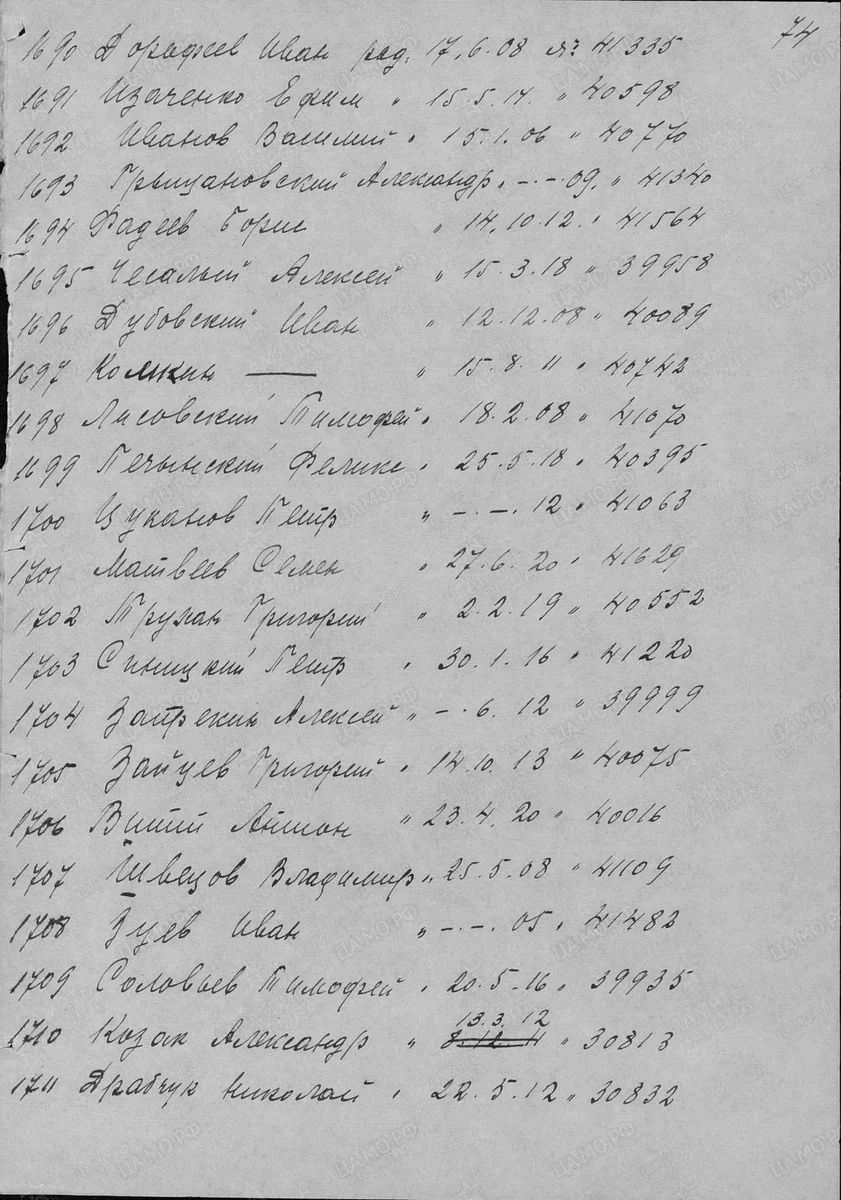 74
1690 Дорафеев Иван род. 17.6.08 л№ 41335
1691 Изаченко Ефим " 15.5.14. " 40598
1692 Иванов Василий " 15.1.06 " 40770
1693 Грыцановский Александр " -.-.09. " 41340
1694 Фадеев Борис " 14.10.12. " 41564
1695 Чесалый Алексей " 15.3.18 " 39958
1696 Дубовский Иван " 12.12.08 " 40089
1697 Колкин — " 15.8.11 " 40742
1698 Лисовский Тимофей " 18.2.08 " 41070
1699 Печынский Феликс " 25.5.18 " 40395
1700 Цуканов Петр " -.-.12 " 41063
1701 Матвеев Семен " 27.6.20 " 41629
1702 Трухан Григорий " 2.2.19 " 40552
1703 Синицкий Петр " 30.1.16 " 41220
1704 Запрекин Алексей " -.6.12 " 39999
1705 Зайцев Григорей " 14.10.13 " 40075
1706 Витий Антон " 23.4.20 " 40016
1707 Швецов Владимир " 25.5.08 " 41109
1708 Зуев Иван " -.-.05 " 41482
1709 Соловьев Тимофей " 20.5.16 " 39935
13.3.12
1710 Козак Александр " 8.12.11 " 30813
1711 Драбчук Николай " 22.5.12 " 30832